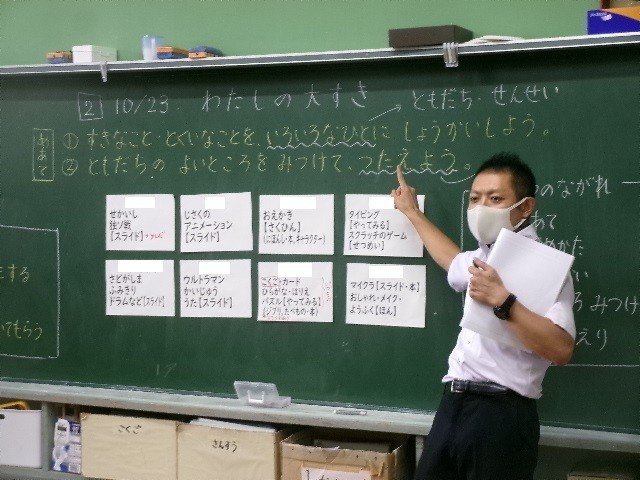 2 10/23. わたしの大すき
ともだち・せんせい
めあて
① すきなこと・とくいなことを、いろいろなひとに しょうかいしよう。
② ともだちの よいところを みつけて、つたえよう。
せかいし
独ソ戦
【スライド】
じさくの
アニメーション
【スライド】
おえかき
【さくひん】
(にほんし・水、キャラクター)
タイピング
【やってみる】
スクラッチのゲーム
【せつめい】
さどがしま
ふみきり
ドラムなど【スライド】
ウルトラマン
かいじゅう
うた【スライド】
こくごカード
ひらがな・はりえ
パズル【やってみる】
(ジブリ、たべもの・本)
マイクラ【スライド・本】
おしゃれ・メイク・
ようふく【ほん】
のながれ
あて
かた
い
みつけ
えり
する
てもらう
こくご
さんすう